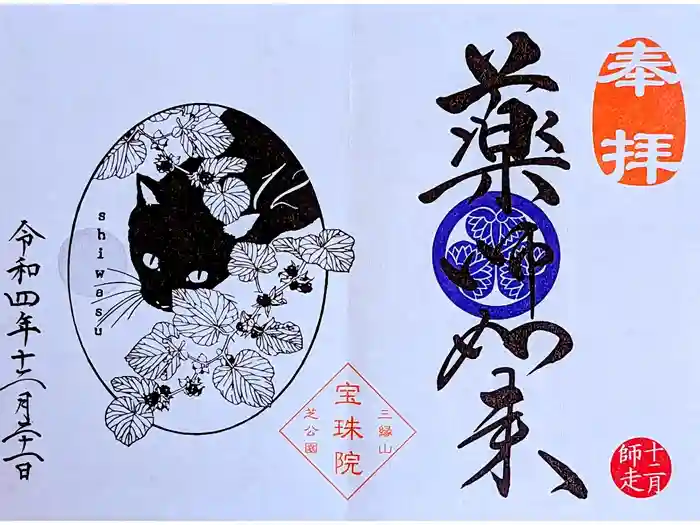 奉拝
薬師如来
十二月
師走
三縁山
宝珠院
芝公園
shiwasu
令和四年十二月二十一日